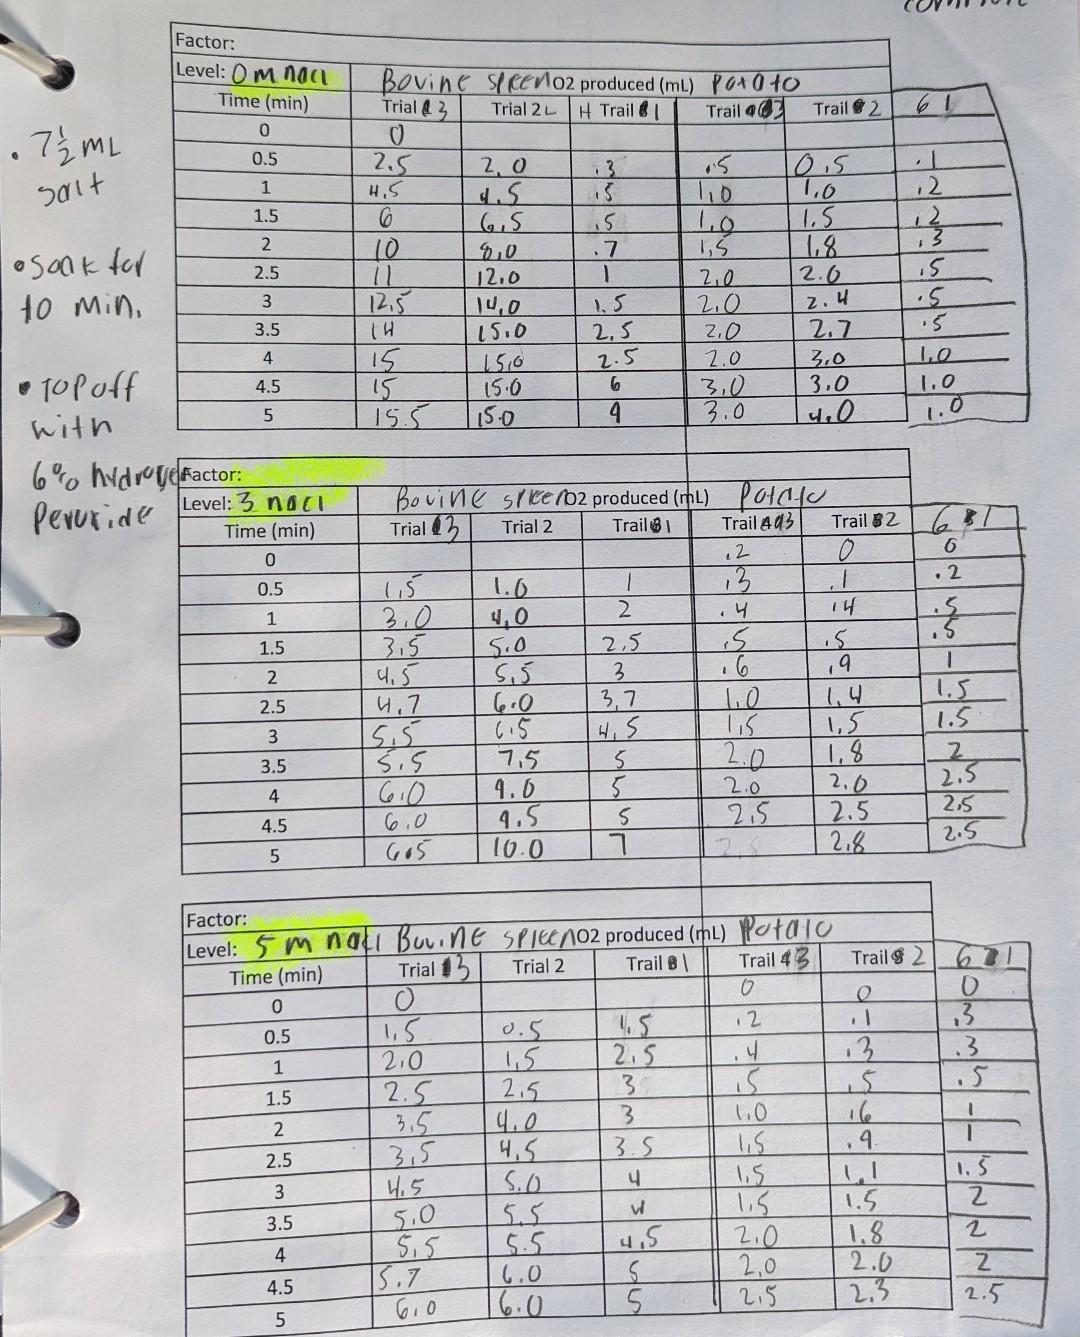 Factor:
Level: 0 m nacl Bovine spleen O2 produced (mL) Potato
Time (min) Trial 3 Trial 2 Trail 1 Trail 3 Trail 2 6 1
0 0
0.5 2.5 2.0 .3 .5 0.5 .1
1 4.5 4.5 .5 1.0 1.0 .2
1.5 6 6.5 .5 1.0 1.5 .2
2 10 8.0 .7 1.5 1.8 .3
2.5 11 12.0 1 2.0 2.0 .5
3 12.5 14.0 1.5 2.0 2.4 .5
3.5 14 15.0 2.5 2.0 2.7 .5
4 15 15.0 2.5 2.0 3.0 1.0
4.5 15 15.0 6 3.0 3.0 1.0
5 15.5 15.0 9 3.0 4.0 1.0
• 7 1/2 mL
salt
• soak for
10 min.
• Top off
with
6% hydrogen
Peruxide
Factor:
Level: 3 nacl Bovine spleen O2 produced (mL) Potato
Time (min) Trial 3 Trial 2 Trail 1 Trail 3 Trail 2 6 1
0 .2 0 0
0.5 1.5 1.0 1 .3 .1 .2
1 3.0 4.0 2 .4 .4 .5
1.5 3.5 5.0 2.5 .5 .5 .5
2 4.5 5.5 3 .6 .9 1
2.5 4.7 6.0 3.7 1.0 1.4 1.5
3 5.5 6.5 4.5 1.5 1.5 1.5
3.5 5.5 7.5 5 2.0 1.8 2
4 6.0 9.0 5 2.0 2.0 2.5
4.5 6.0 9.5 5 2.5 2.5 2.5
5 6.5 10.0 7 2.8 2.8 2.5
Factor:
Level: 5 m nacl Bovine spleen O2 produced (mL) Potato
Time (min) Trial 3 Trial 2 Trail 1 Trail 3 Trail 2 6 1
0 0 0 0 0
0.5 1.5 0.5 1.5 .2 .1 .3
1 2.0 1.5 2.5 .4 .3 .3
1.5 2.5 2.5 3 .5 .5 .5
2 3.5 4.0 3 1.0 .6 1
2.5 3.5 4.5 3.5 1.5 .9 1
3 4.5 5.0 4 1.5 1.1 1.5
3.5 5.0 5.5 4 1.5 1.5 2
4 5.5 5.5 4.5 2.0 1.8 2
4.5 5.7 6.0 5 2.0 2.0 2
5 6.0 6.0 5 2.5 2.3 2.5